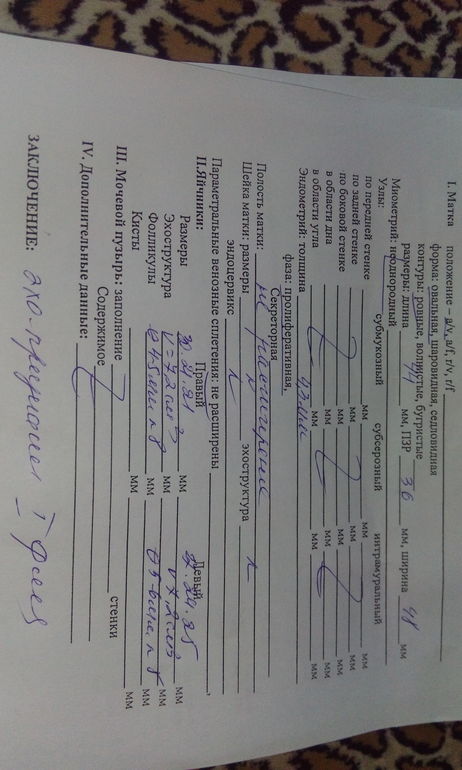 I. Матка положение – a/v, a/f, r/v, r/f
форма: овальная, шаровидная, седловидная
контуры: ровные, волнистые, бугристые
размеры: длина 44 мм, ПЗР 36 мм, ширина 48 мм
Миометрий: неоднородный
Узлы: субмукозный субсерозный интрамуральный
по передней стенке мм мм мм
по задней стенке мм мм мм
по боковой стенке мм мм мм
в области дна мм мм мм
в области угла мм мм мм
Эндометрий: толщина мм
фаза: пролиферативная
Секреторная
Полость матки: не расширена
Шейка матки: размеры эхоструктура
эндоцервикс
Параметральные венозные сплетения: не расширены
II.Яичники: Правый Левый
Размеры мм 24.25 мм
Эхоструктура
Фолликулы мм мм
Кисты мм мм
III. Мочевой пузырь: заполнение стенки мм
Содержимое
IV. Дополнительные данные:
ЗАКЛЮЧЕНИЕ: эхо-признаки I фазы